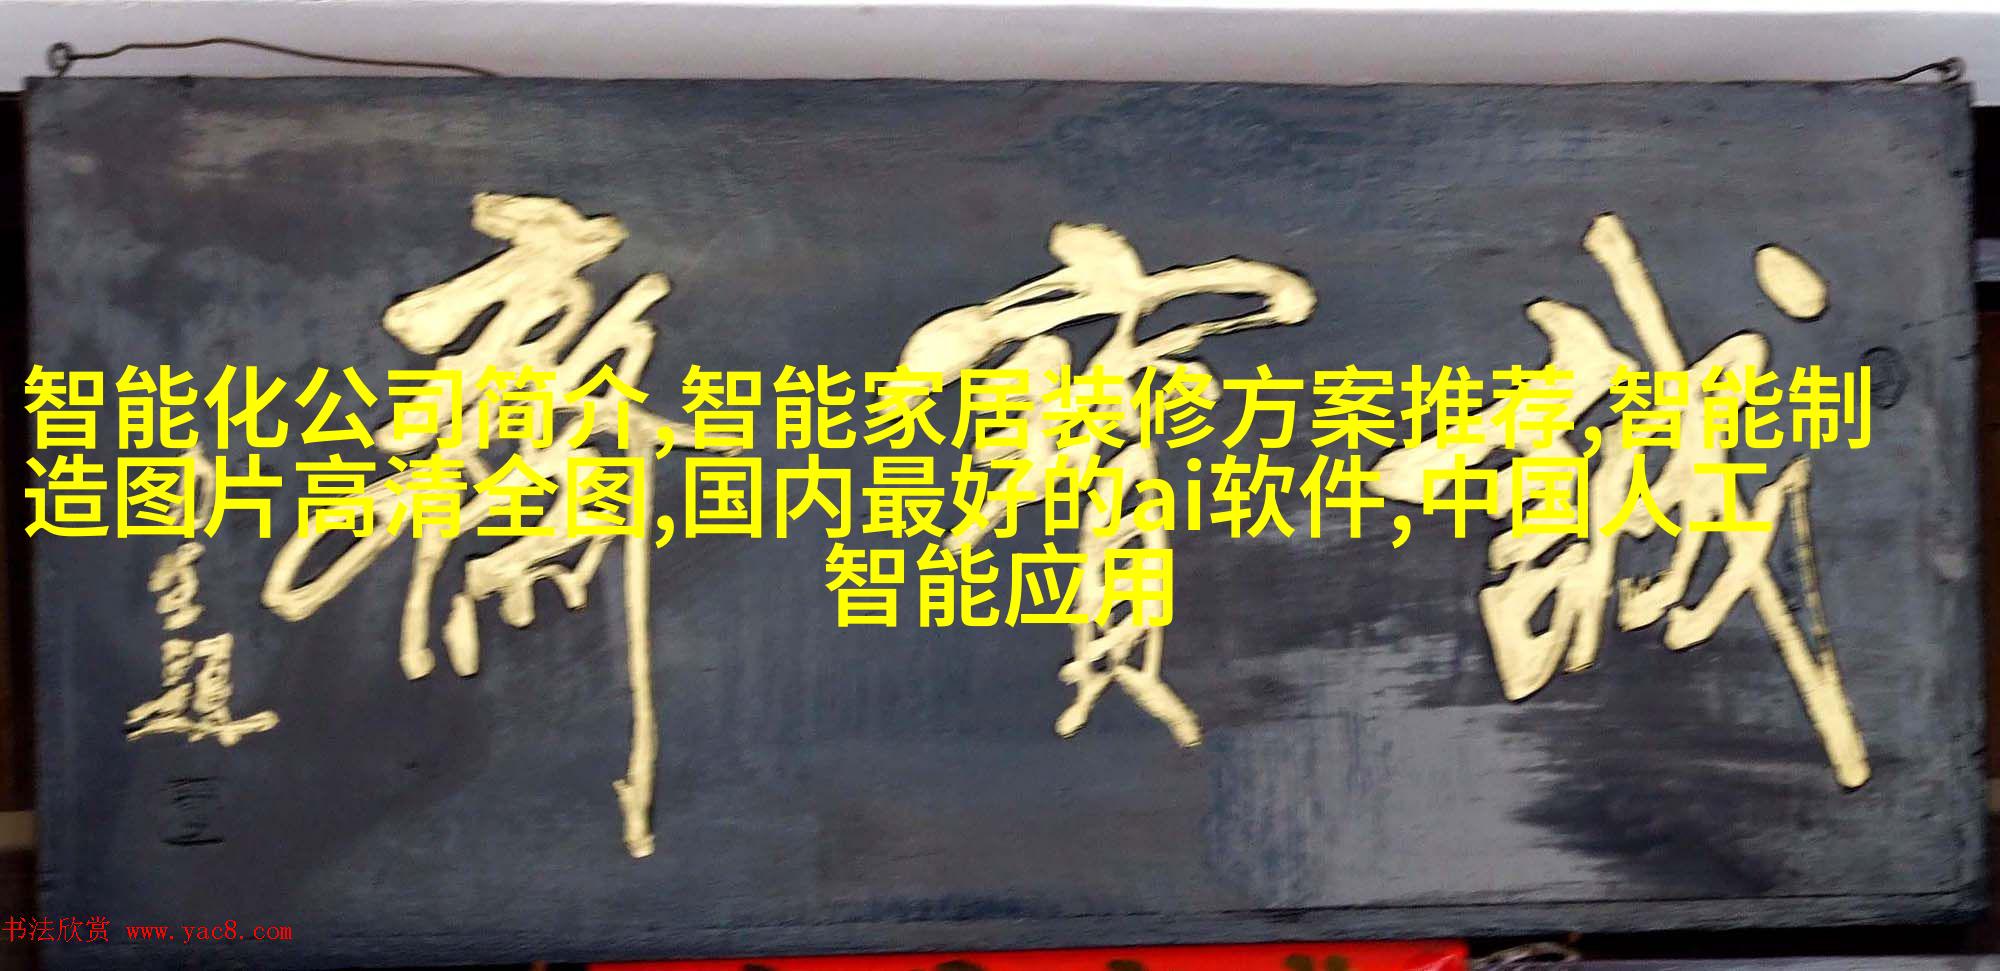 智能化公司简介,智能家居装修方案推荐,智能制
造图片高清全图,国内最好的ai软件,中国人工
智能应用
誠寶齋
书法欣赏 www.yac8.com